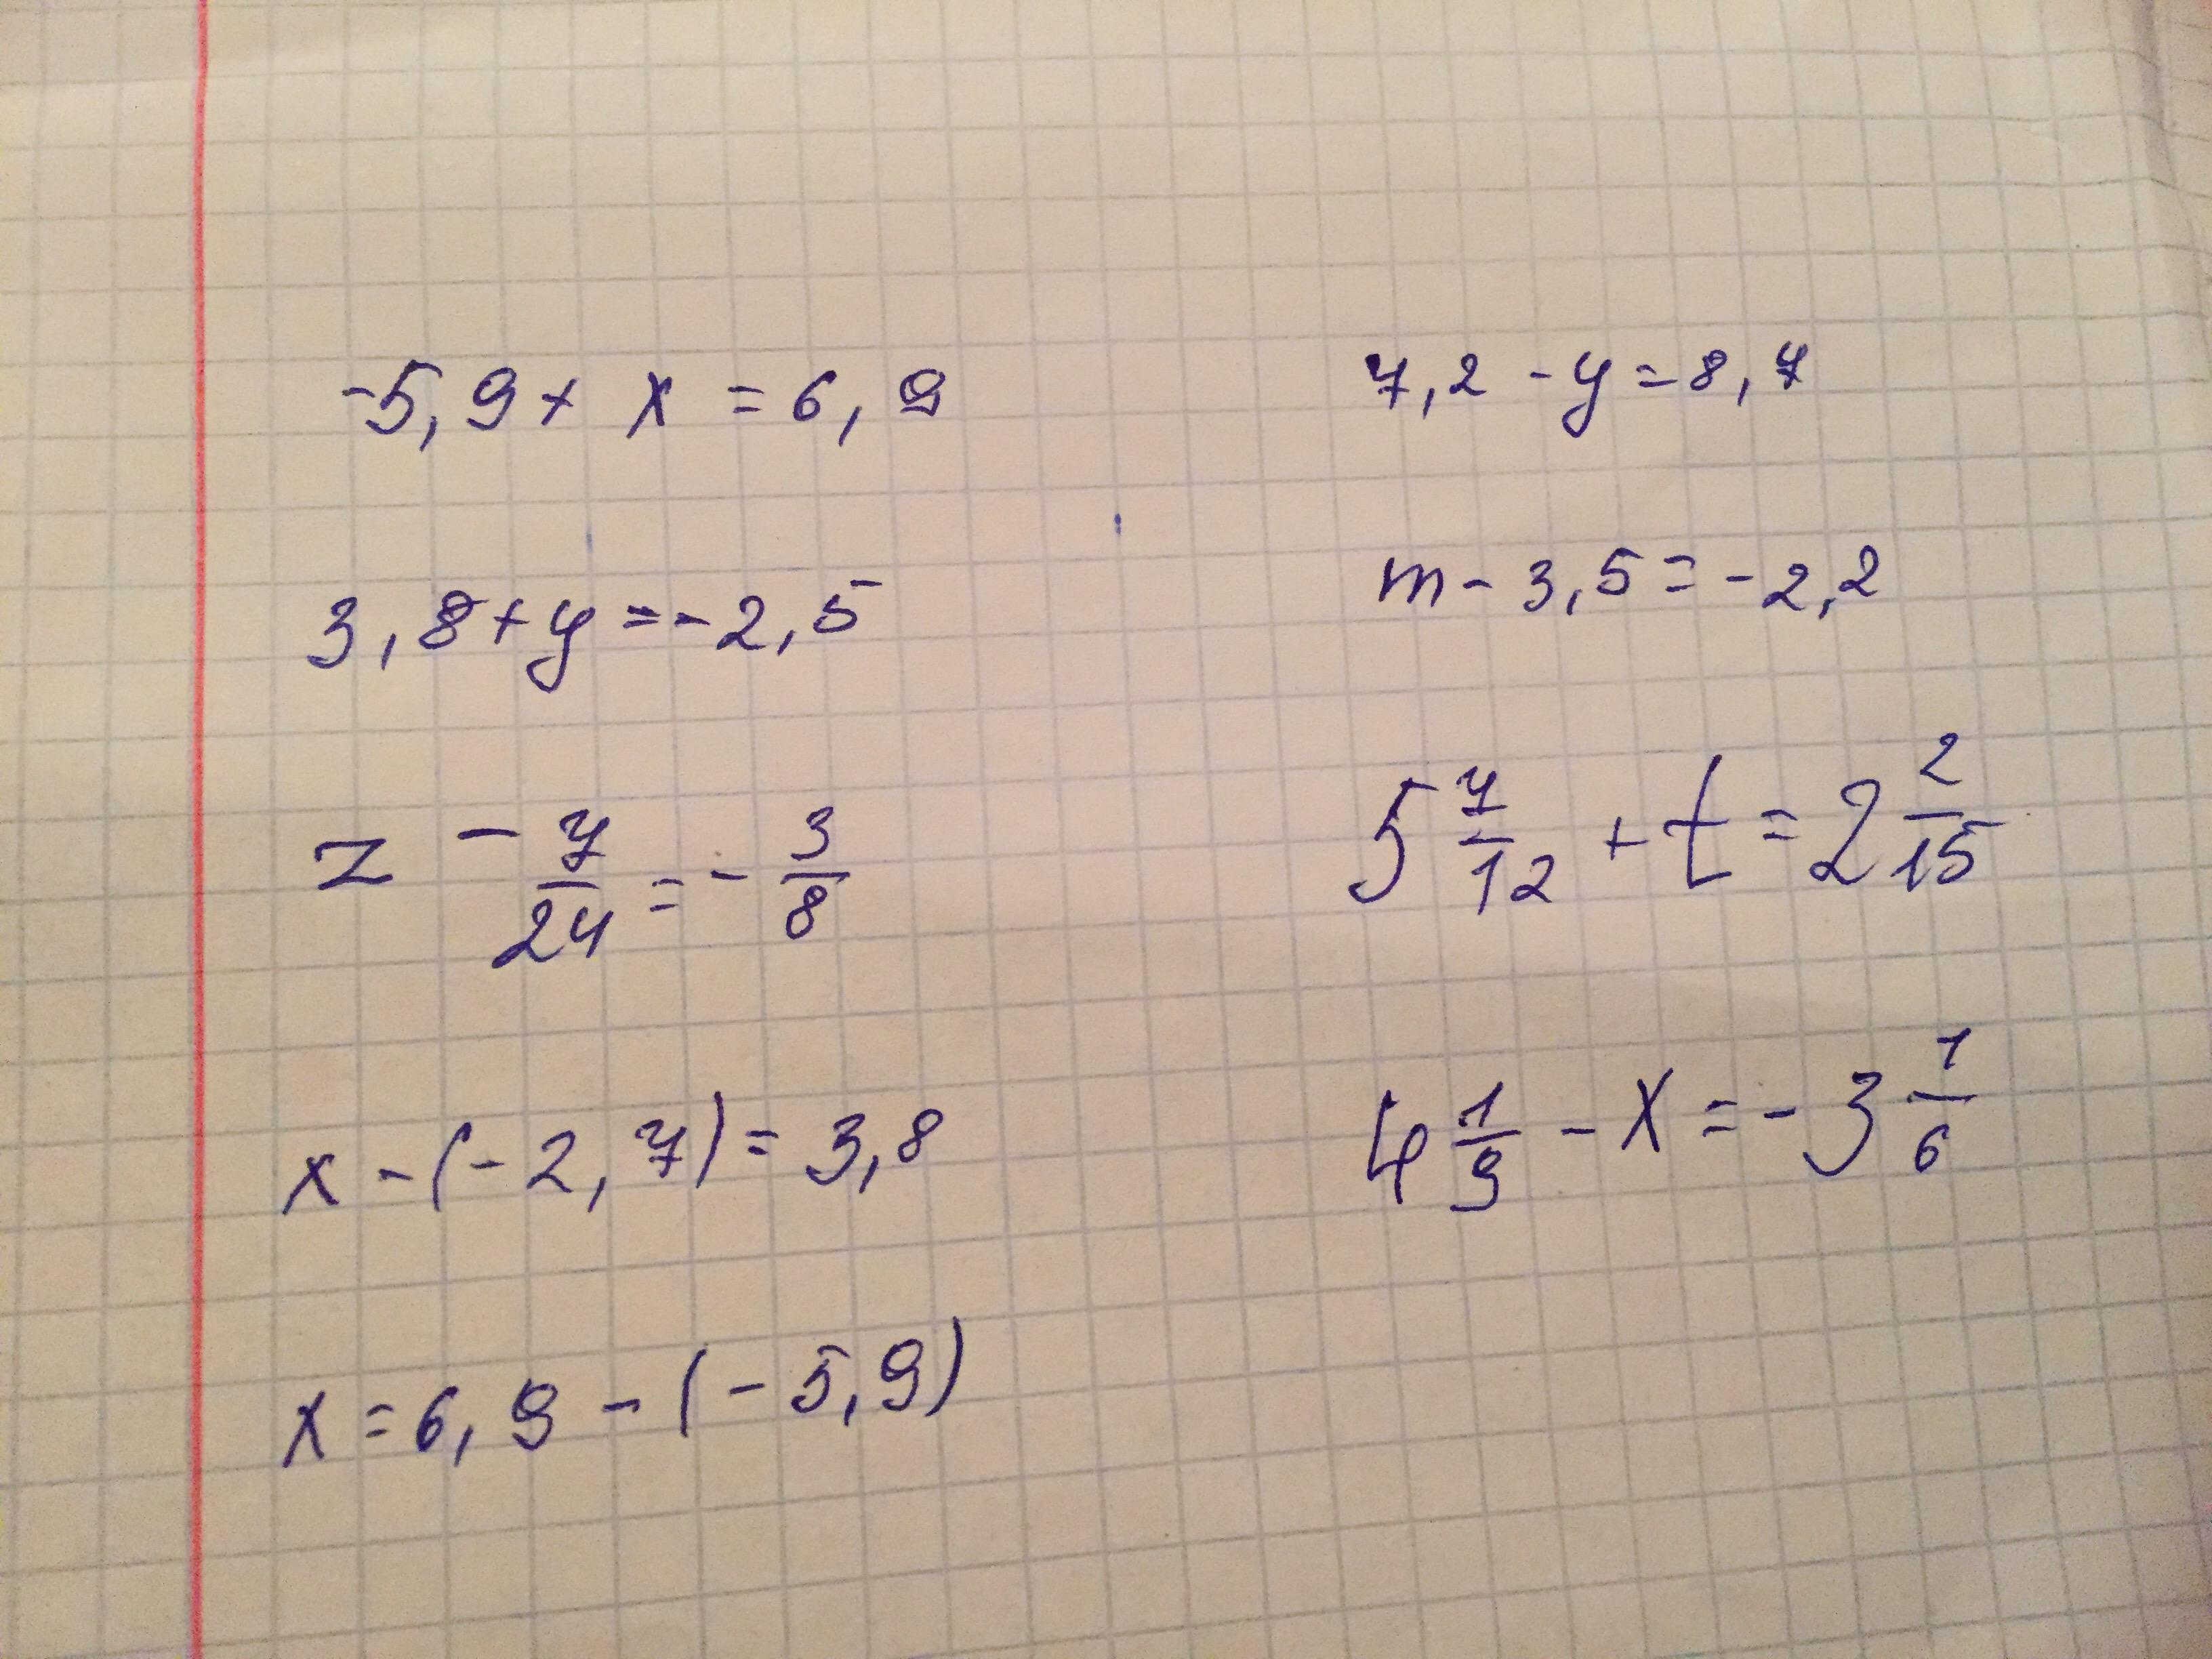 -5,9 + x = 6,9
3,8 + y = -2,5
z - 7/24 = - 3/8
x - (-2,7) = 3,8
x = 6,9 - (-5,9)
7,2 - y = 8,7
m - 3,5 = -2,2
5 7/12 + t = 2 2/15
4 1/9 - x = -3 1/6